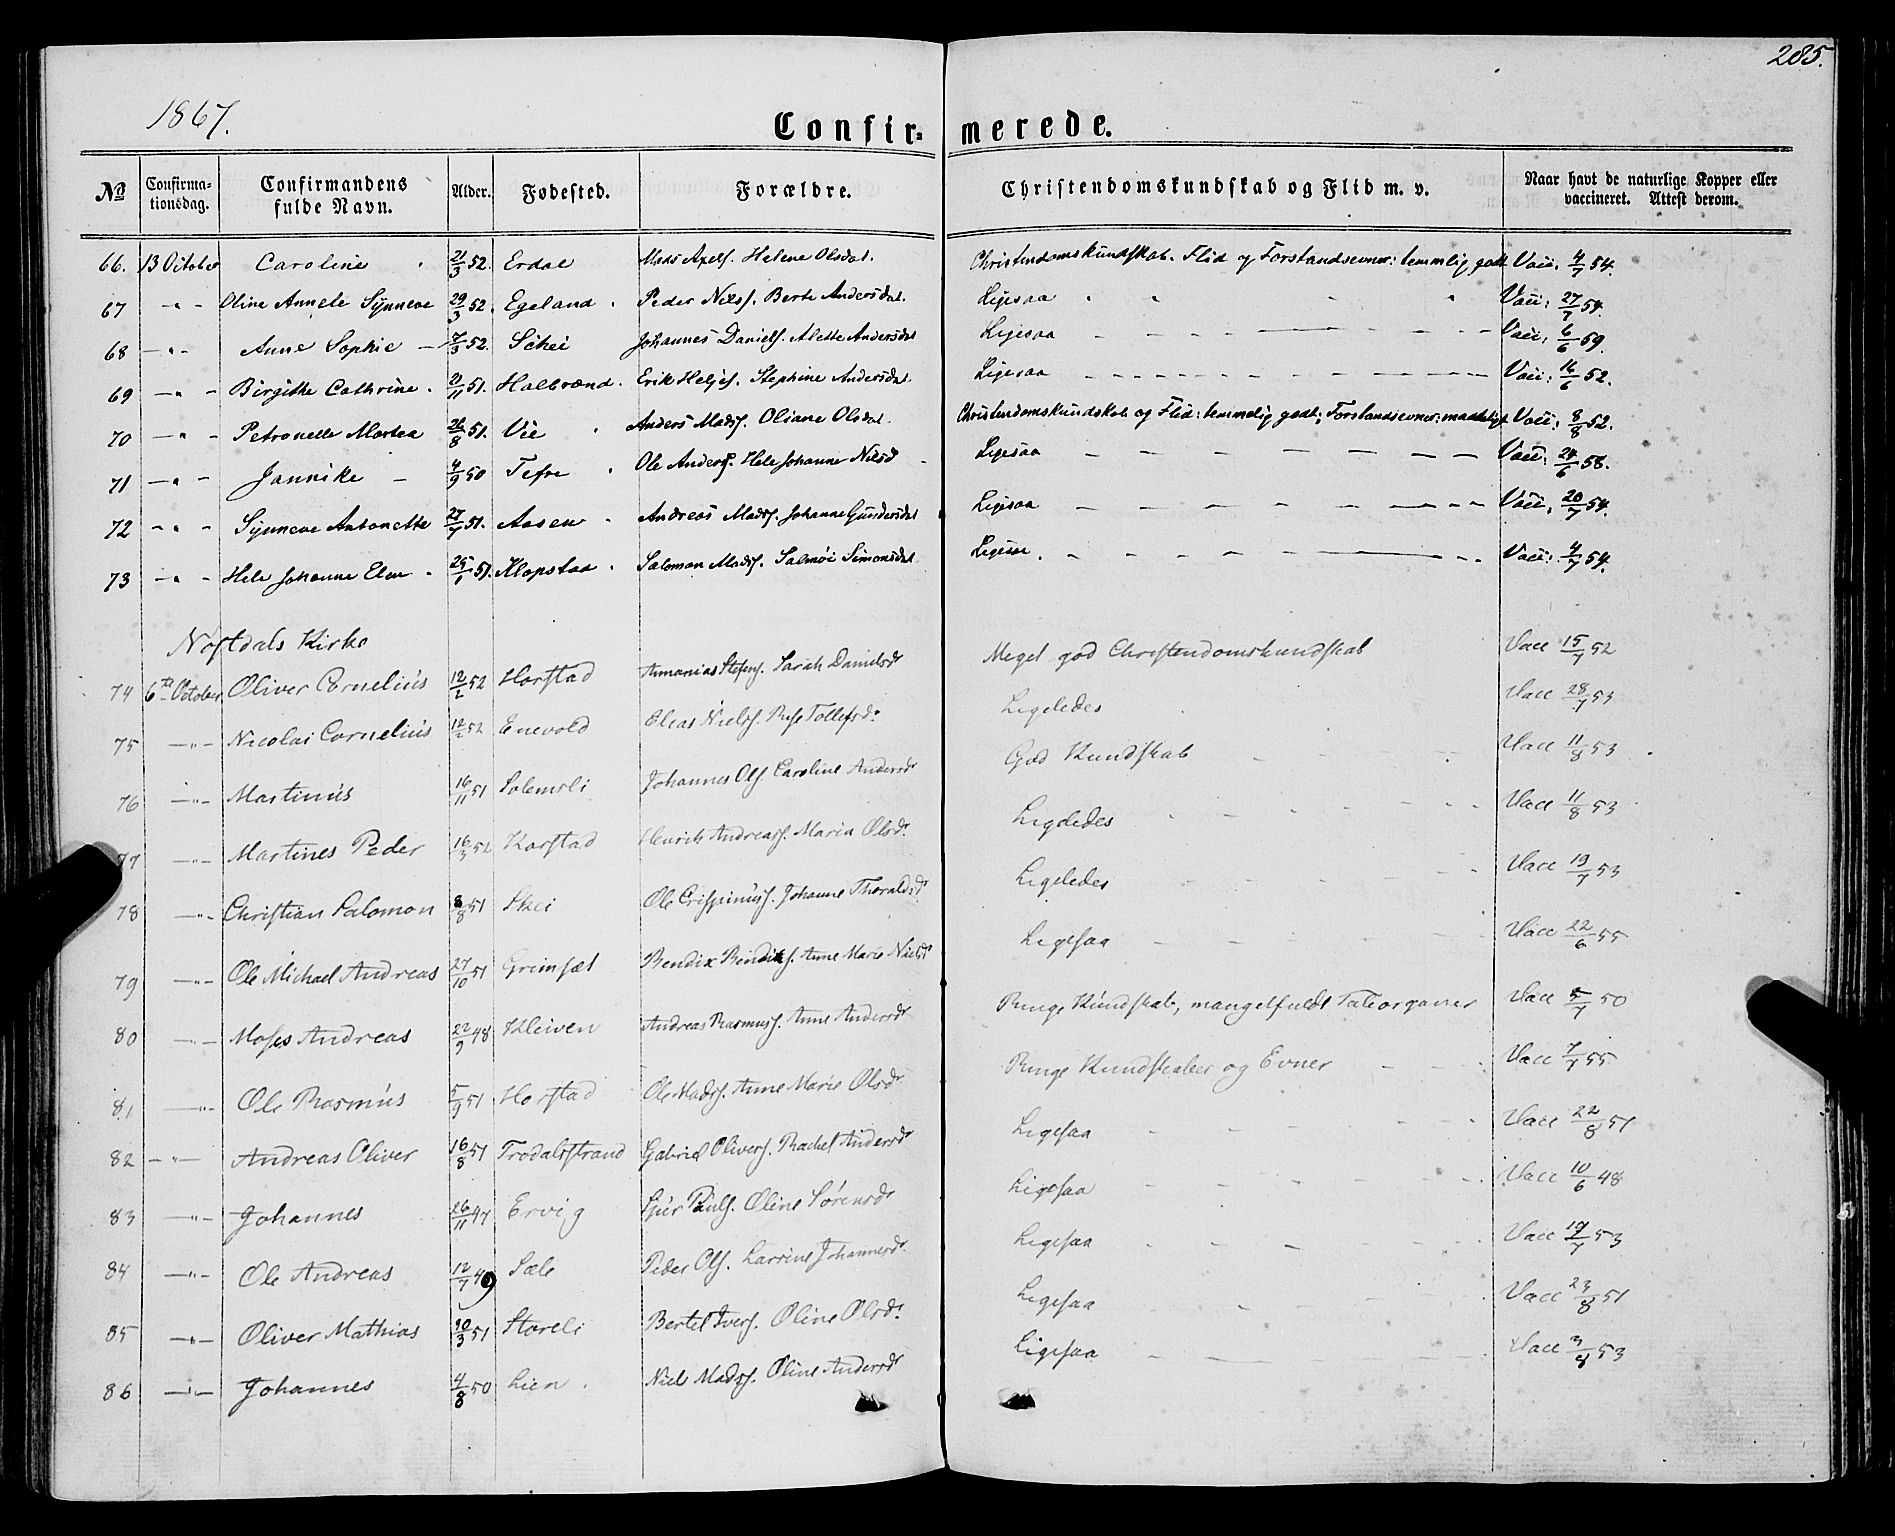 285.
1867.
Confir- merede.
No Confirma-tionsdag. Confirmandens fulde Navn. Alder. Fødested. Forældre. Christendomskundskab og Flid m. v. Naar havt de naturlige Kopper eller vaccineret. Attest derom.
66. 13 October Caroline 21/3 52. Erdal Mads Axels. Helene Olsdat. Christendomskundskab. Flid og Forstandsevner: temmelig godt Vacc. 4/7 54.
67 - " - Oline Annete Synneve 29/3 52. Egeland Peder Nilss. Berte Andersdat. Ligesaa Vacc: 27/7 54.
68 - " - Anne Sophie 7/3 52. Schei Johannes Daniels. Alette Andersdat Ligesaa Vacc: 6/6 59.
69 - " - Birgithe Cathrine 21/11 51. Halbrænd. Erik Heljes. Stephine Andersdat. Ligesaa Vacc: 16/6 52.
70 - " - Petronelle Martea 26/8 51. Vie Anders Madss. Oliane Olsdat. Christendomskundskab og Flid: temmelig godt; Forstandsevner: maadeligt Vacc: 8/8 52.
71 - " - Jannike 4/9 50 Tefre Ole Anders. Hele Johanne Nilsd Ligesaa Vacc: 24/6 58.
72 - " - Synneve Antonette 27/7 51. Aasen Andreas Madss. Johanne Gundersdat Ligesaa Vacc. 20/7 54.
73 - " - Hele Johanne Elen 25/1 51. Klopstaa Salomon Madss. Salmøi Simonsdat Ligesaa Vacc: 4/7 54.
Nostdals Kirke
74 6te October Oliver Cornelius 12/2 52 Horstad Ananias Stefens. Sarah Danielsdr Meget god Christendomskundskab Vacc 15/7 52
75 - " - Nicolai Cornelius 12/2 52 Enevold Elias Nielss. Tollefsdr. Ligeledes Vacc 28/7 53
76 - " - Martinus 16/11 51 Solemsli Johannes Ols. Caroline Andersdr God Kundskab Vacc 11/8 53
77 - " - Martines Peder 16/3 52 Horstad Henrik Andreass. Maria Olsdr. Ligeledes Vacc 11/8 53
78 - " - Christian Salomon 8/8 51 Skei Ole Crispinuss. Johanne Thoraldsdr Ligeledes Vacc 19/7 53
79 - " - Ole Michael Andreas 27/10 51 Grimsæt Bendix Bendiks. Anne Marie Nielsdr Ligesaa Vacc 22/6 55
80 - " - Moses Andreas 22/9 48 Kleiven Andreas Rasmuss. Anne Andersdr Ringe Kundskab, mangelfulde Taleorganer Vacc 5/7 50
81 - " - Ole Rasmus 5/9 51 Horstad Ole Madss. Anne Marie Olsdr. Ringe Kundskaber og Evner Vacc 7/7 55
82 - " - Andreas Oliver 16/8 51 Trodalsstrand Gabriel Olivers. Rachel Andersdr Ligesaa Vacc 22/8 51
83 - " - Johannes 26/11 47 Ervig Pauls. Oline Sørensdr Ligesaa Vacc 10/6 48
84 - " - Ole Andreas 12/7 49 Sæle Peder Ols. Larrine Johannesdr Ligesaa Vacc 19/7 53
85 - " - Oliver Mathias 10/3 51 Storeli Bertel Ivers. Oline Olsdr. Ligesaa Vacc 23/8 51
86 - " - Johannes 4/8 50 Lien Niels Madss. Oline Andersdr Ligesaa Vacc 3/8 53